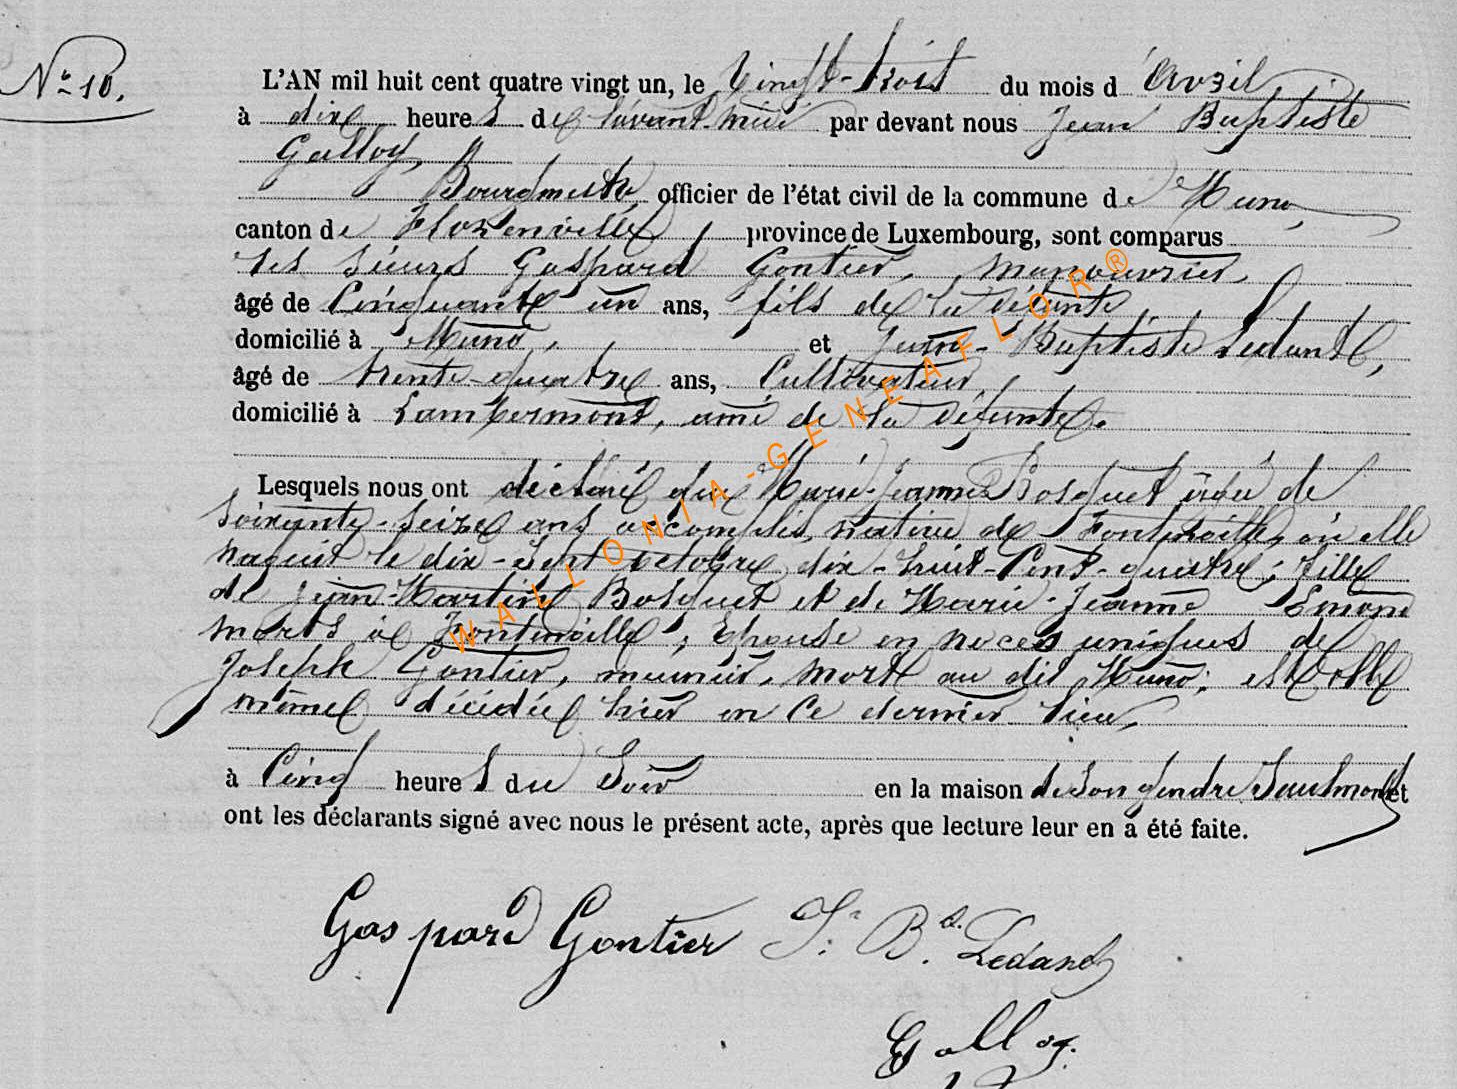 Nº 10.
L'AN mil huit cent quatre vingt un, le Vingt-trois du mois d'Avril
à dix heures de l'avant-midi par devant nous Jean Baptiste
Galloy,
Bourgmestre officier de l'état civil de la commune de Muno,
canton de Florenville province de Luxembourg, sont comparus
les sieurs Gaspard Gontier, manouvrier,
âgé de Cinquante un ans, fils de la défunte
domicilié à Muno, et Jean-Baptiste Ledant,
âgé de trente-quatre ans, Cultivateur
domicilié à Lambermont, ami de la défunte.
Lesquels nous ont déclaré que Marie-Jeanne Bosquet âgée de
soixante-seize ans accomplis, native de Fontenoille, où elle
naquit le dix-sept octobre dix-huit-Cent-quatre; fille
de Jean-Martin Bosquet et de Marie-Jeanne Emond
morts à Fontenoille; Epouse en noces uniques de
Joseph Gontier, meunier, mort au dit Muno; est elle
même décédée hier en ce dernier lieu,
à Cinq heures du Soir en la maison de son gendre Saulmont et
ont les déclarants signé avec nous le présent acte, après que lecture leur en a été faite.
Gaspard Gontier J. Bte. Ledand
Galloy.
WALLONIA-GENEAFLOR®